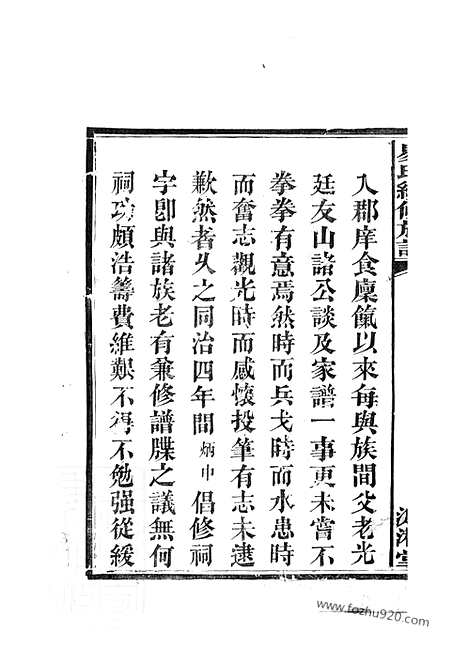 入郡庠食廩餼以來每與族間父老光
廷友山諸公談及家譜一事更未嘗不
拳拳有意焉然時而兵戈時而水患時
而奮志觀光時而感懷投筆有志未逮
歉然者久之同治四年間炳中倡修祠
宇卽與諸族老有兼修譜牒之議無何
祠功頗浩籌費維艱不得不勉强從緩
www.fozhu920.com